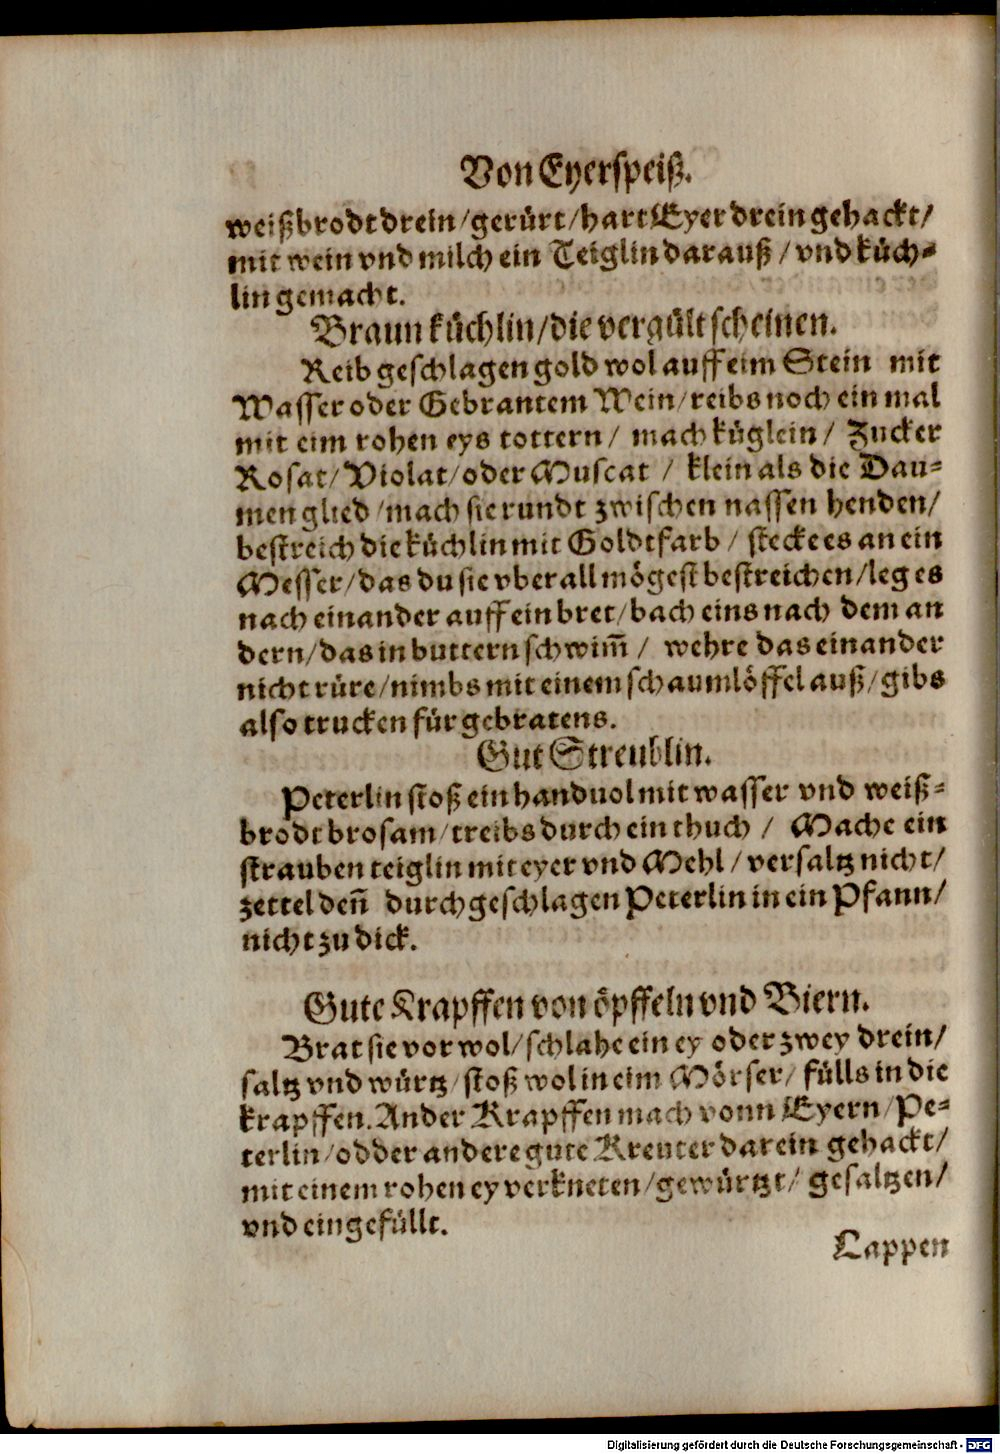 Von Eyerspeiß.
weißbrodt drein/gerürt/hart Eyer drein gehackt/
mit wein vnd milch ein Teiglin darauß/vnd küch-
lin gemacht.
Braun küchlin/die vergült scheinen.
Reib geschlagen gold wol auff eim Stein mit
Wasser oder Gebrantem Wein/reibs noch ein mal
mit eim rohen eys tottern/ mach küglein/ Zucker
Rosat/Violat/oder Muscat / klein als die Dau-
men glied/mach sie rundt zwischen nassen henden/
bestreich die küchlin mit Goldtfarb/ stecke es an ein
Messer/das du sie vberall mögest bestreichen/leg es
nach einander auff ein bret/bach eins nach dem an
dern/das in buttern schwim̃/ wehre das einander
nicht rüre/nimbs mit einem schaumlöffel auß/gibs
also trucken für gebratens.
Gut Streublin.
Peterlin stoß ein handuol mit wasser vnd weiß-
brodt brosam/treibs durch ein thuch/ Mache ein
strauben teiglin mit eyer vnd Mehl/versaltz nicht/
zettel deñ durchgeschlagen Peterlin in ein Pfann/
nicht zu dick.
Gute Krapffen von öpffeln vnd Biern.
Brat sie vor wol/schlahe ein ey oder zwey drein/
saltz vnd würtz/stoß wol in eim Mörser/fülls in die
krapffen. Ander Krapffen mach vonn Eyern/Pe-
terlin/odder andere gute Kreuter darein gehackt/
mit einem rohen ey verkneten/gewürtzt/gesaltzen/
vnd eingefüllt.
Lappen
Digitalisierung gefördert durch die Deutsche Forschungsgemeinschaft - DFG